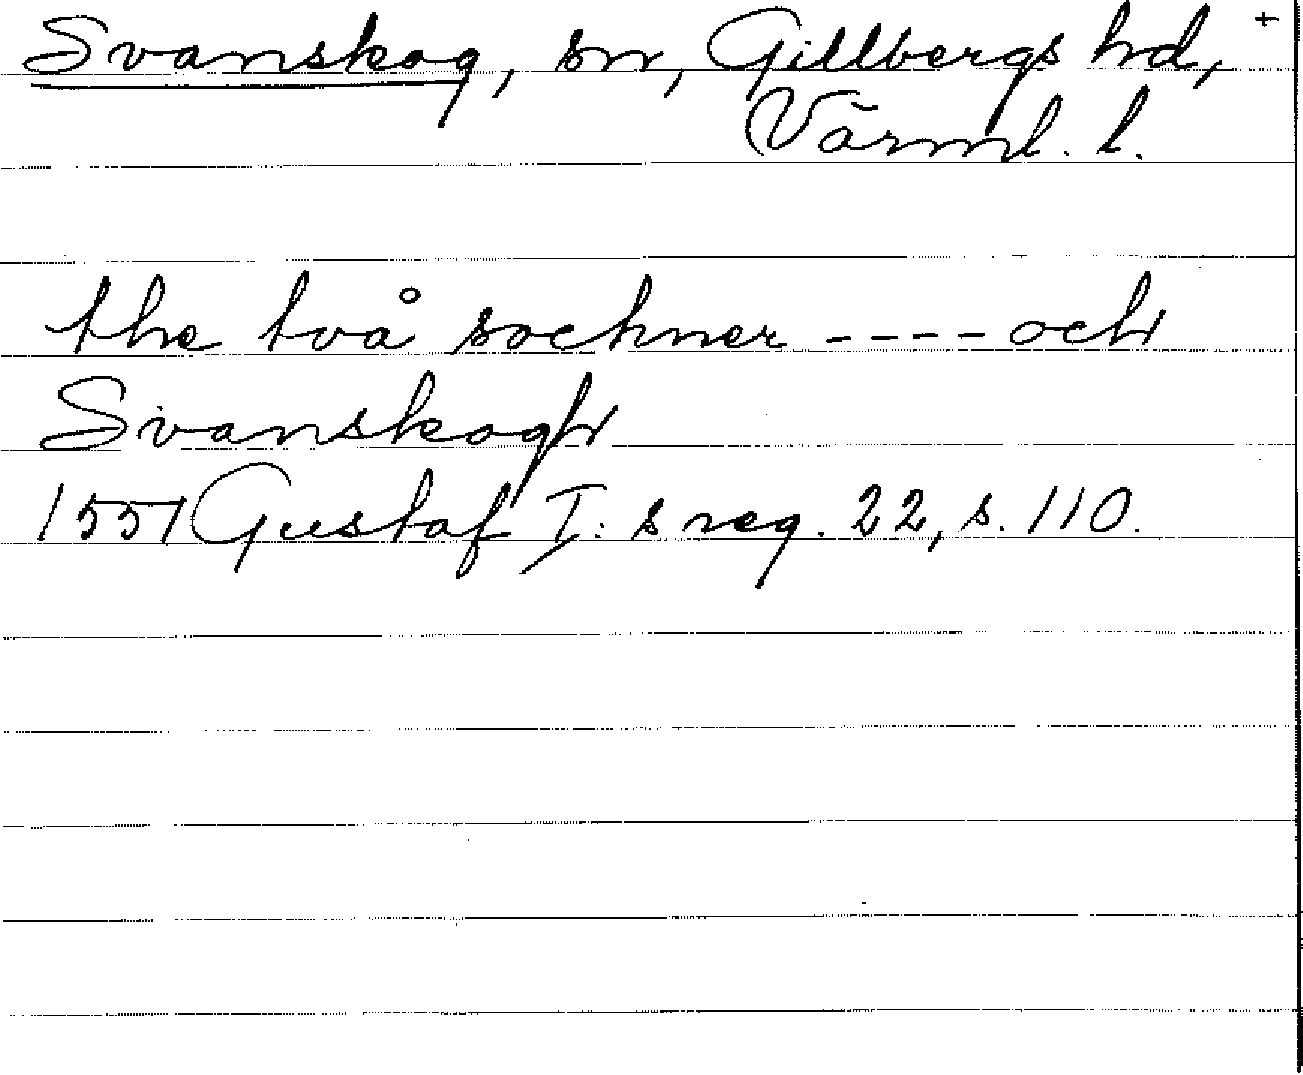 Svanskog, sn, Gillbergs hd, +
Värml. l.
the två sochner ---- och
Svanskogh
1551 Gustaf I:s reg. 22, s. 110.